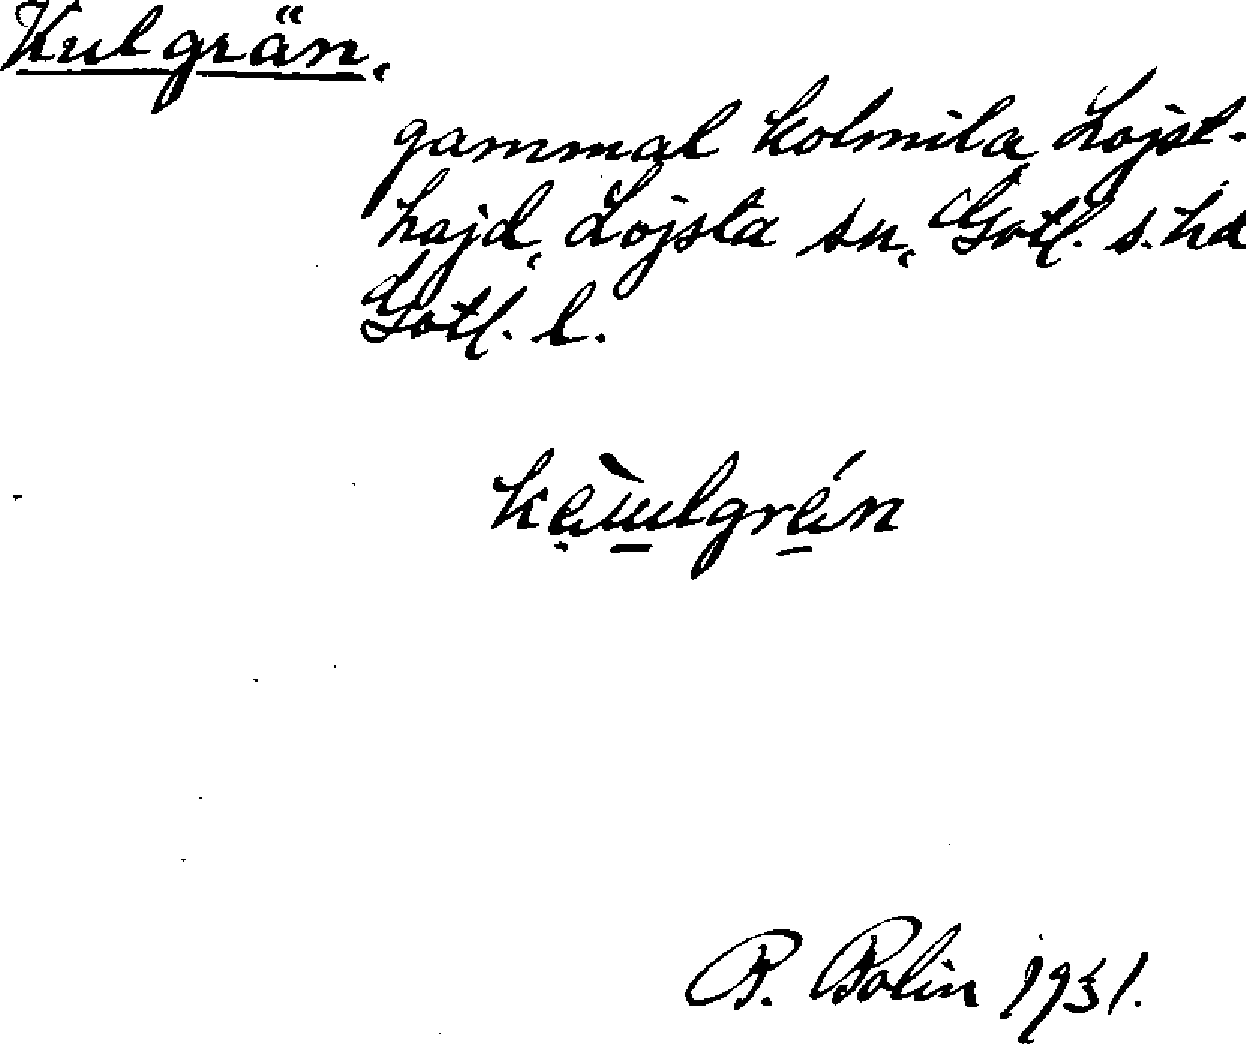 Kulgrän,
gammal kolmila, Lojst-
hajd, Lojsta sn, Gotl. s. hd
Gotl. l.
B. Bolin 1931.